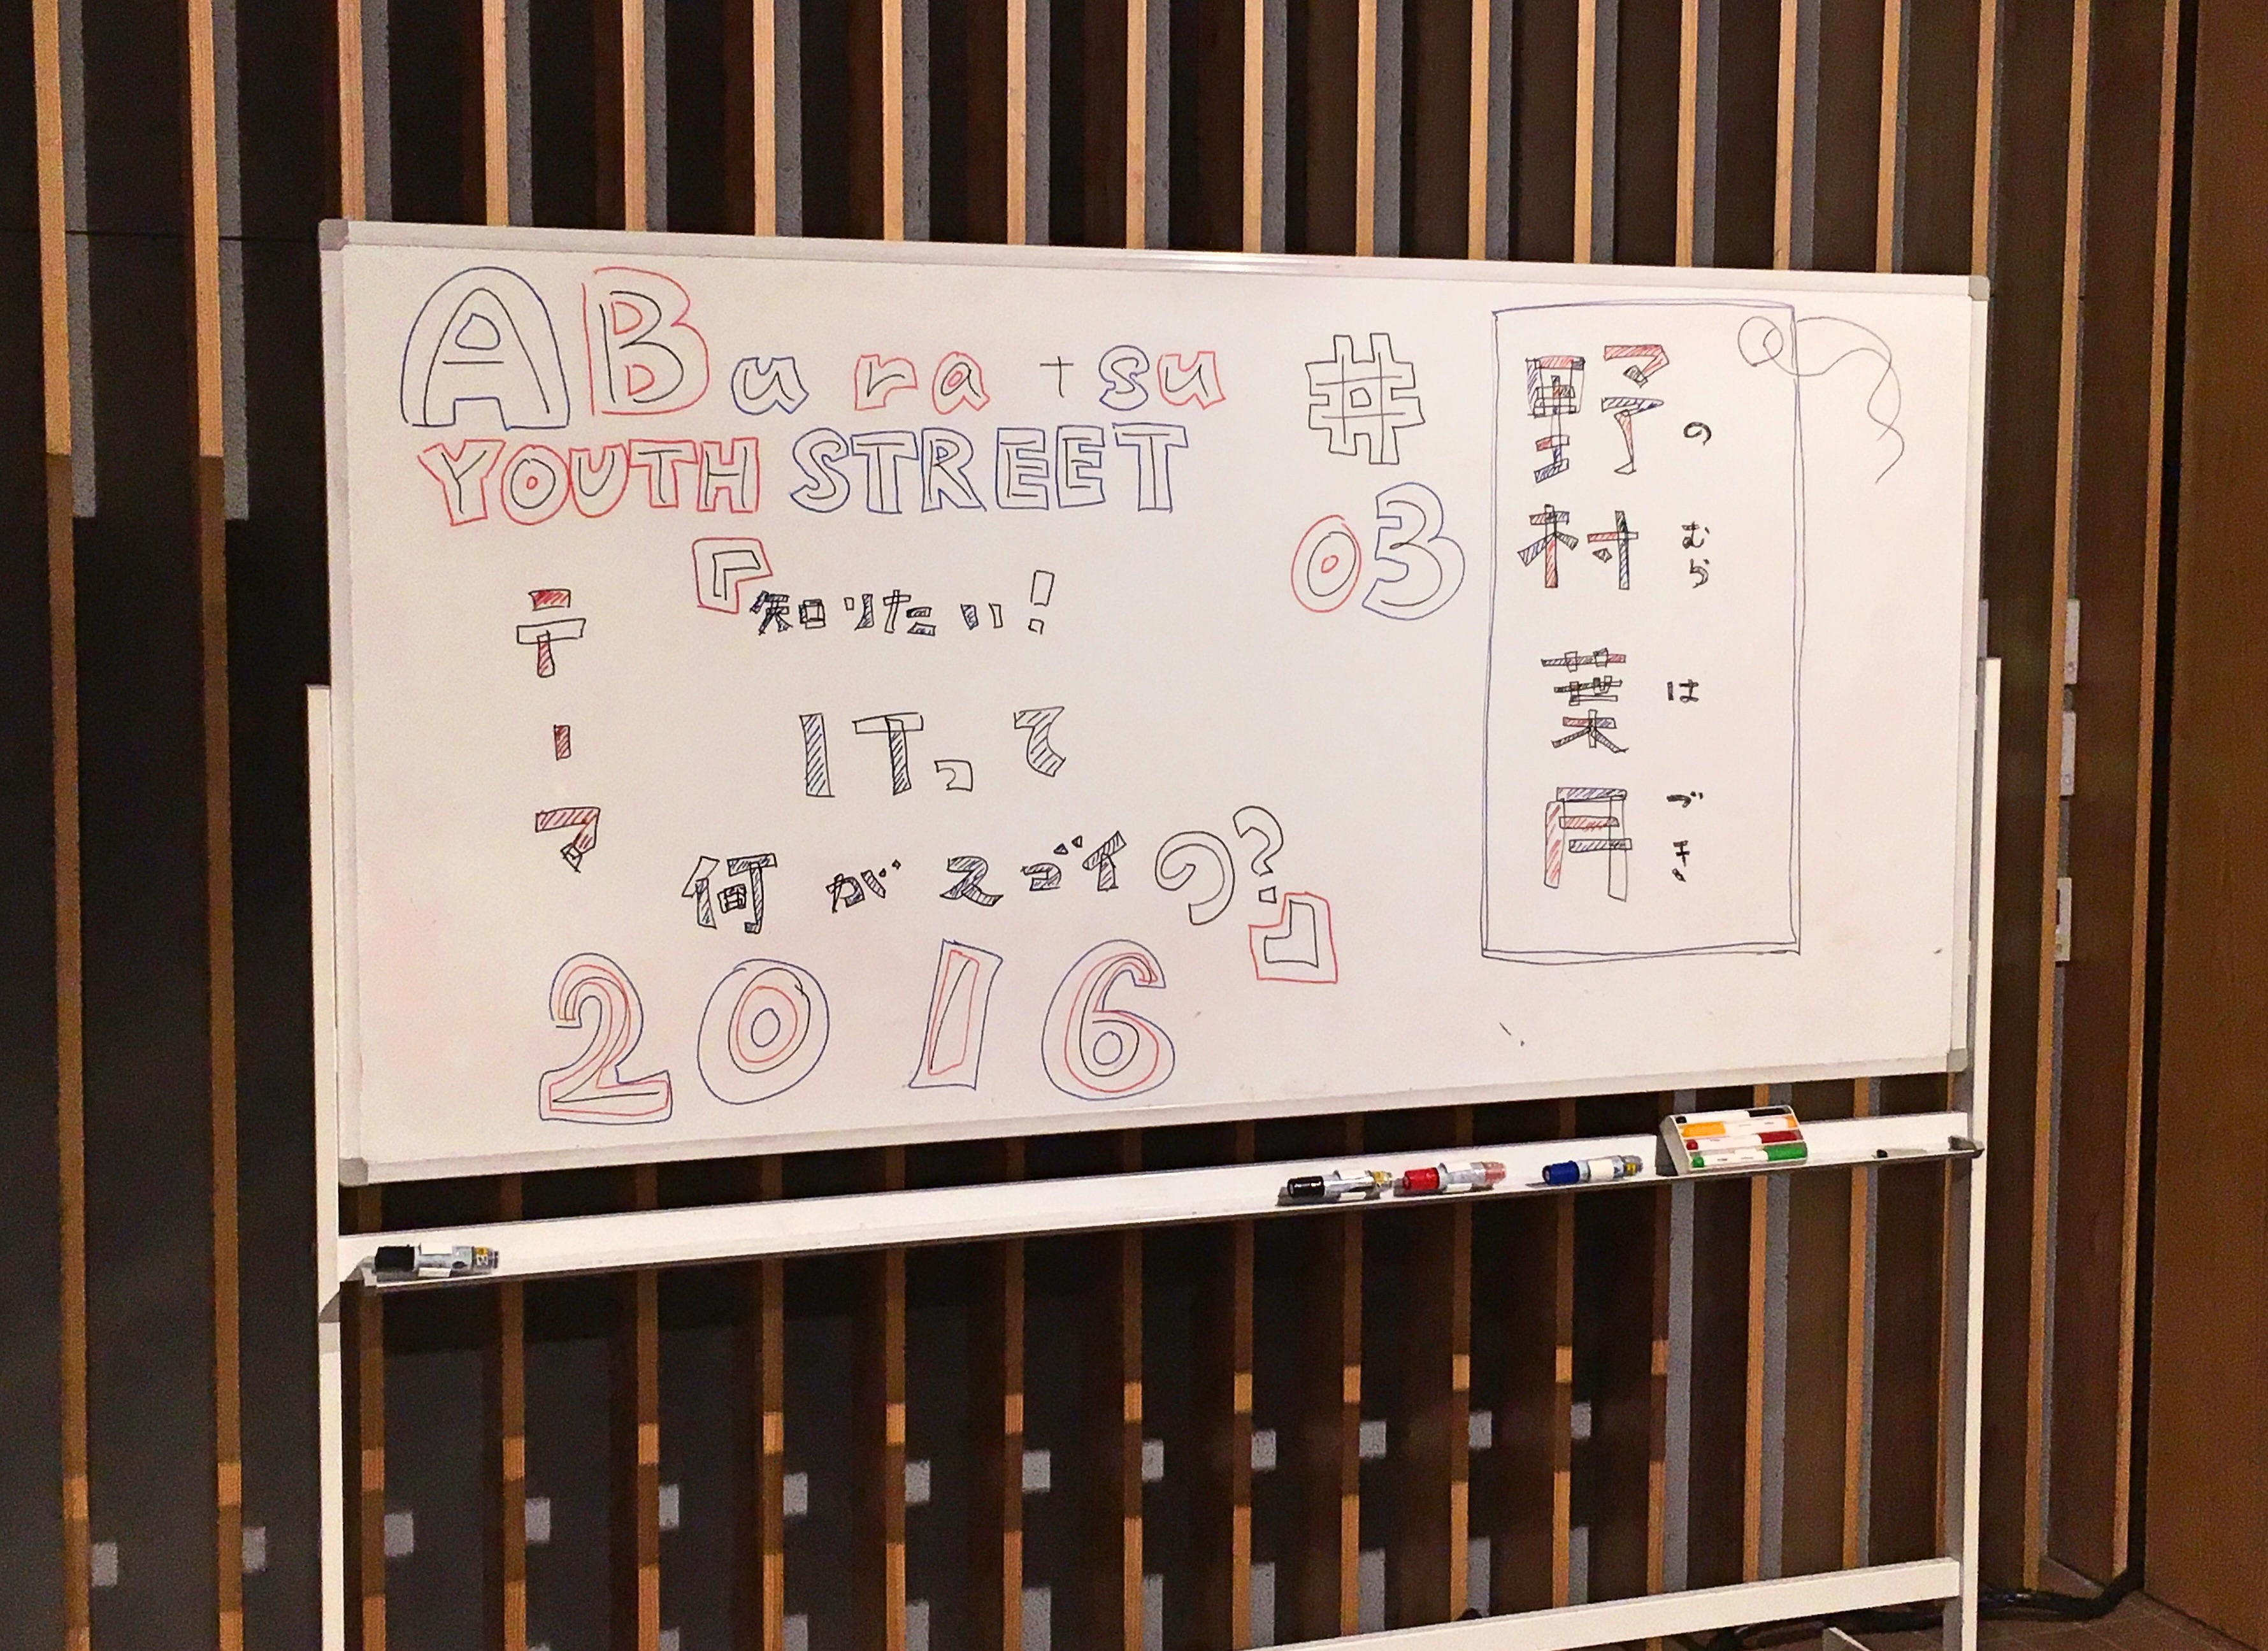 ABura+su
YOUTH STREET
#
03
テーマ
『知りたい!
ITって
何がスゴイの?』
2016
野村 葉月
の むら は づき